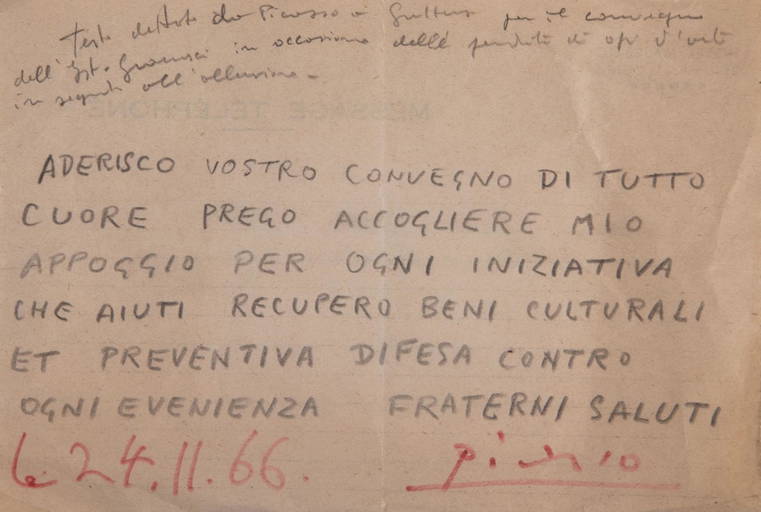 Testo dettato da Picasso a Guttuso per il convegno
dell'Ist. Gramsci in occasione delle perdite di op. d'arte
in seguito all'alluvione -
MESSAGE TÉLÉPHONÉ
ADERISCO VOSTRO CONVEGNO DI TUTTO
CUORE PREGO ACCOGLIERE MIO
APPOGGIO PER OGNI INIZIATIVA
CHE AIUTI RECUPERO BENI CULTURALI
ET PREVENTIVA DIFESA CONTRO
OGNI EVENIENZA FRATERNI SALUTI
le 24.11.66. Picasso